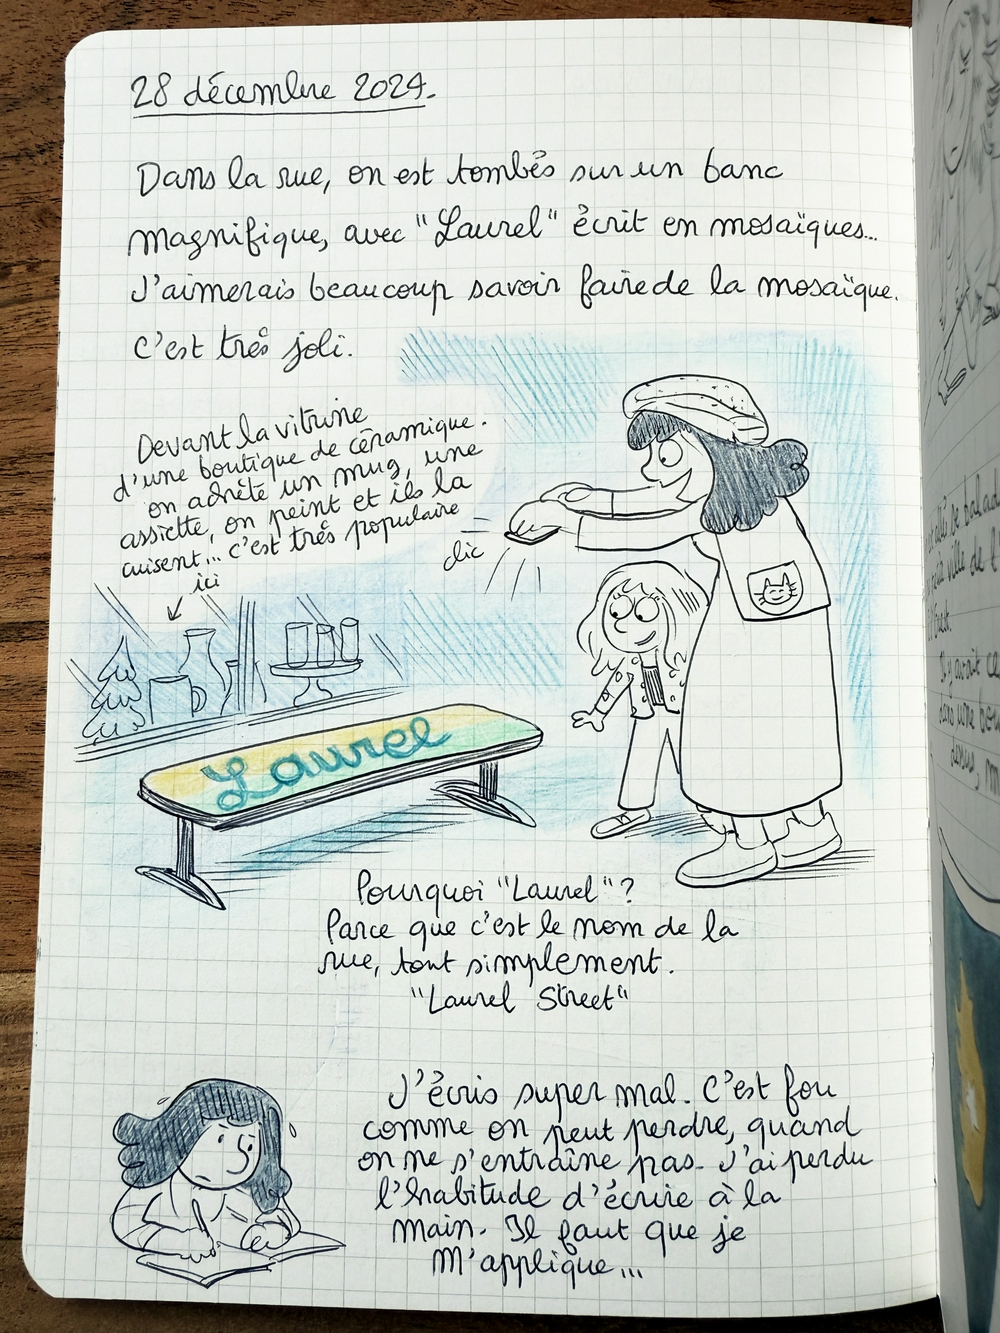 28 décembre 2024.
Dans la rue, on est tombés sur un banc
magnifique, avec "Laurel" écrit en mosaïques...
J'aimerais beaucoup savoir faire de la mosaïque.
C'est très joli.
Devant la vitrine
d'une boutique de céramique.
on achète un mug, une
assiette, on peint et ils la
cuisent... C'est très populaire
ici
clic
Laurel
Pourquoi "Laurel"?
Parce que c'est le nom de la
rue, tout simplement.
"Laurel Street"
J'écris super mal. C'est fou
comme on peut perdre, quand
on ne s'entraîne pas. J'ai perdu
l'habitude d'écrire à la
main. Il faut que je
m'applique...